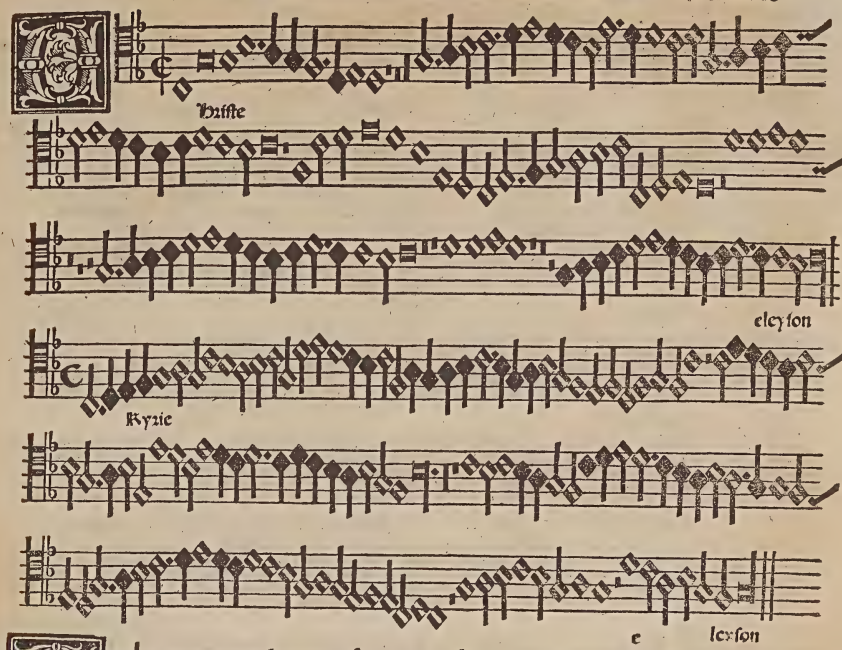 hriste
eleyson
Kyrie
e leyson